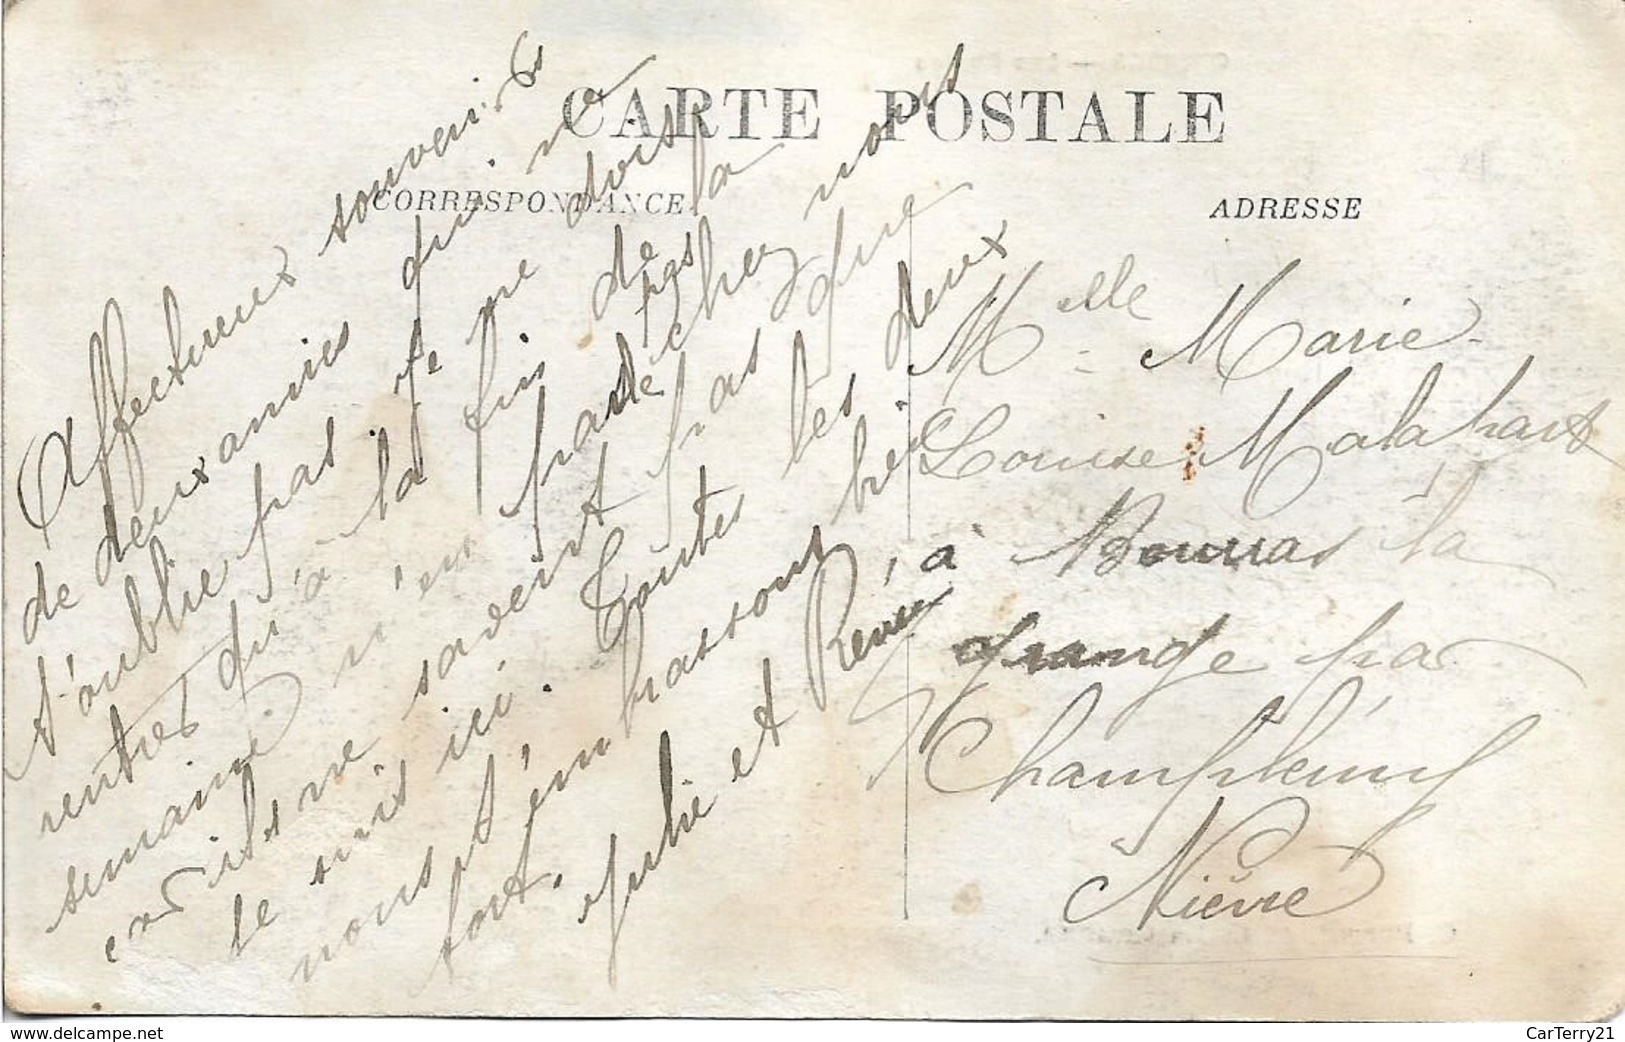 CARTE POSTALE
CORRESPONDANCE
ADRESSE
Affectueux souvenirs
de deux amies qui ne
t'oublie pas je ne dois
rentres qu'à la fin de la
semaine n'en parle pas
car ils ne savent pas que
je suis ici. Toutes les deux
nous t'embrassons bien
fort.
Julie et Renée
chez nous
Melle Marie
Louise Malapart
à Bournas la
grange par
Champlemy
Nièvre
www.delcampe.net
CarTerry21